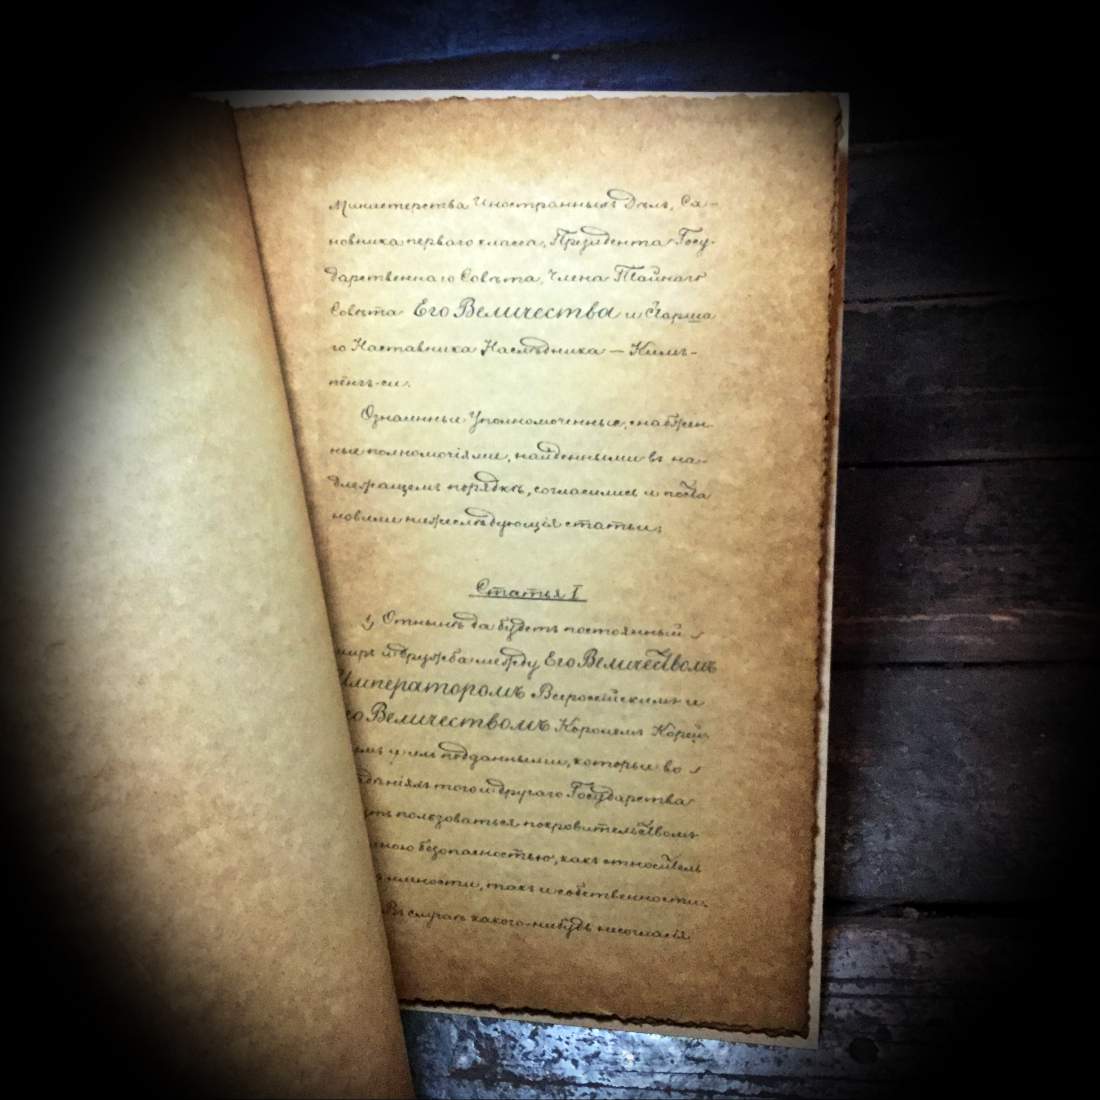 Министерства Иностранныхъ Дѣлъ, Са-
новника перваго класса, Президента Госу-
дарственнаго Совѣта, Члена Тайнаго
Совѣта Его Величества и Старша
го Наставника Наслѣдника — Кимъ-
пёнгъ-си.
Означенные Уполномоченные, снабжен-
ные полномочіями, найденными въ на-
длежащемъ порядкѣ, согласились и поста
новили нижеслѣдующія статьи:
Статья I
1, Отнынѣ да будетъ постоянный
миръ и дружба между Его Величествомъ
Императоромъ Всероссійскимъ и
Его Величествомъ Королемъ Корей
и ихъ подданными, которые во
того и другаго Государства
пользоваться покровительствомъ
безопасностью, какъ относитель
личности, такъ и собственности.
Въ случаѣ какого-нибудь несогласія